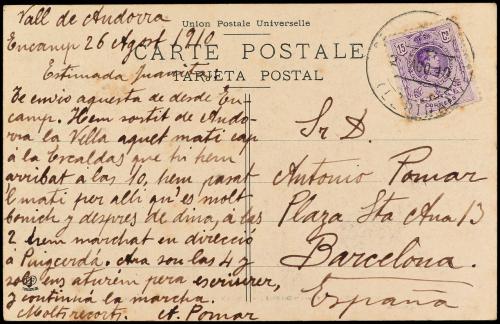 Vall de Andorra
Encamp 26 Agost 1910
Estimada Juanita:
Te envio aquesta de desde En-
camp. Hem sortit de Ando-
rra la Vella aquet mati cap
à la Escaldas que hi hem
arribat à las 10, hem pasat
l mati per alli qu'es molt
bonich y despres de dina, á las
2 hem marchat en direcció
à Puigcerdá. Ara son las 4 y
sols ens aturém pera escriurer,
y continuá la marcha.
Molts recorts. A. Pomar
Union Postale Universelle
CARTE POSTALE
TARJETA POSTAL
15
15
CORREOS
Sr. D.
Antonio Pomar
Plaza Sta Ana 13
Barcelona.
España